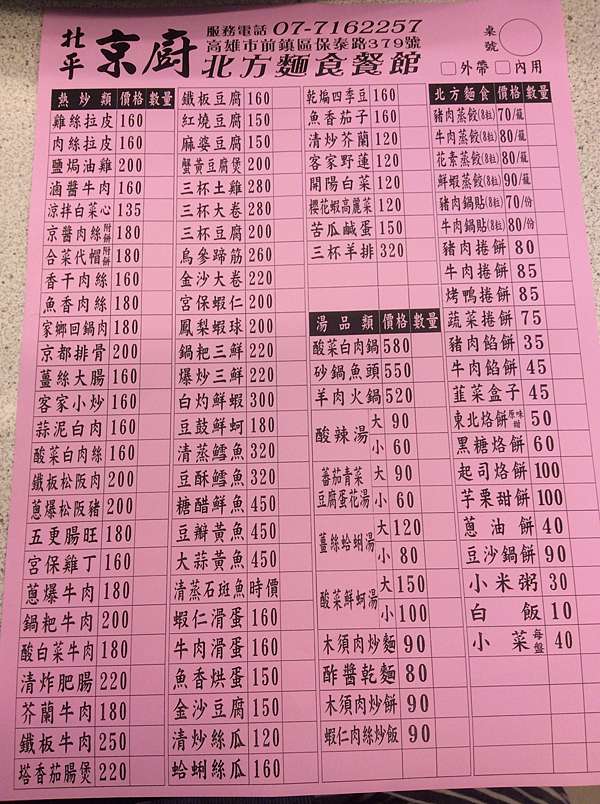 北平 京廚
服務電話 07-7162257
高雄市前鎮區保泰路379號
北方麵食餐館
桌號
□外帶 □內用
熱炒類 價格 數量
雞絲拉皮 160
肉絲拉皮 160
鹽焗油雞 200
滷醬牛肉 160
涼拌白菜心 135
京醬肉絲附餅 180
合菜代帽附餅 180
香干肉絲 160
魚香肉絲 180
家鄉回鍋肉 180
京都排骨 200
薑絲大腸 160
客家小炒 160
蒜泥白肉 160
酸菜白肉絲 160
鐵板松阪肉 200
蔥爆松阪豬 200
五更腸旺 180
宮保雞丁 160
蔥爆牛肉 180
鍋粑牛肉 200
酸白菜牛肉 180
清炸肥腸 220
芥蘭牛肉 180
鐵板牛肉 250
塔香茄腸煲 220
鐵板豆腐 160
紅燒豆腐 150
麻婆豆腐 150
蟹黃豆腐煲 200
三杯土雞 280
三杯大卷 280
三杯豆腐 200
烏參蹄筋 260
金沙大卷 220
宮保蝦仁 200
鳳梨蝦球 200
鍋粑三鮮 220
爆炒三鮮 220
白灼鮮蝦 300
豆鼓鮮蚵 180
清蒸鱈魚 320
豆酥鱈魚 320
糖醋鮮魚 450
豆瓣黃魚 450
大蒜黃魚 450
清蒸石斑魚 時價
蝦仁滑蛋 160
牛肉滑蛋 160
魚香烘蛋 150
金沙豆腐 150
清炒絲瓜 120
蛤蜊絲瓜 160
乾煸四季豆 160
魚香茄子 160
清炒芥蘭 120
客家野蓮 120
開陽白菜 120
櫻花蝦高麗菜 120
苦瓜鹹蛋 150
三杯羊排 320
湯品類 價格 數量
酸菜白肉鍋 580
砂鍋魚頭 550
羊肉火鍋 520
酸辣湯 大 90
小 60
蕃茄青菜豆腐蛋花湯 大 90
小 60
薑絲蛤蜊湯 大 120
小 80
酸菜鮮蚵湯 大 150
小 100
木須肉炒麵 90
酢醬乾麵 80
木須肉炒餅 90
蝦仁肉絲炒飯 90
北方麵食 價格 數量
豬肉蒸餃(8粒) 70/籠
牛肉蒸餃(8粒) 80/籠
花素蒸餃(8粒) 80/籠
鮮蝦蒸餃(8粒) 90/籠
豬肉鍋貼(8粒) 70/份
牛肉鍋貼(8粒) 80/份
豬肉捲餅 80
牛肉捲餅 85
烤鴨捲餅 85
蔬菜捲餅 75
豬肉餡餅 35
牛肉餡餅 45
韮菜盒子 45
東北烙餅原味甜 50
黑糖烙餅 60
起司烙餅 100
芋栗甜餅 100
蔥油餅 40
豆沙鍋餅 90
小米粥 30
白飯 10
小菜每盤 40